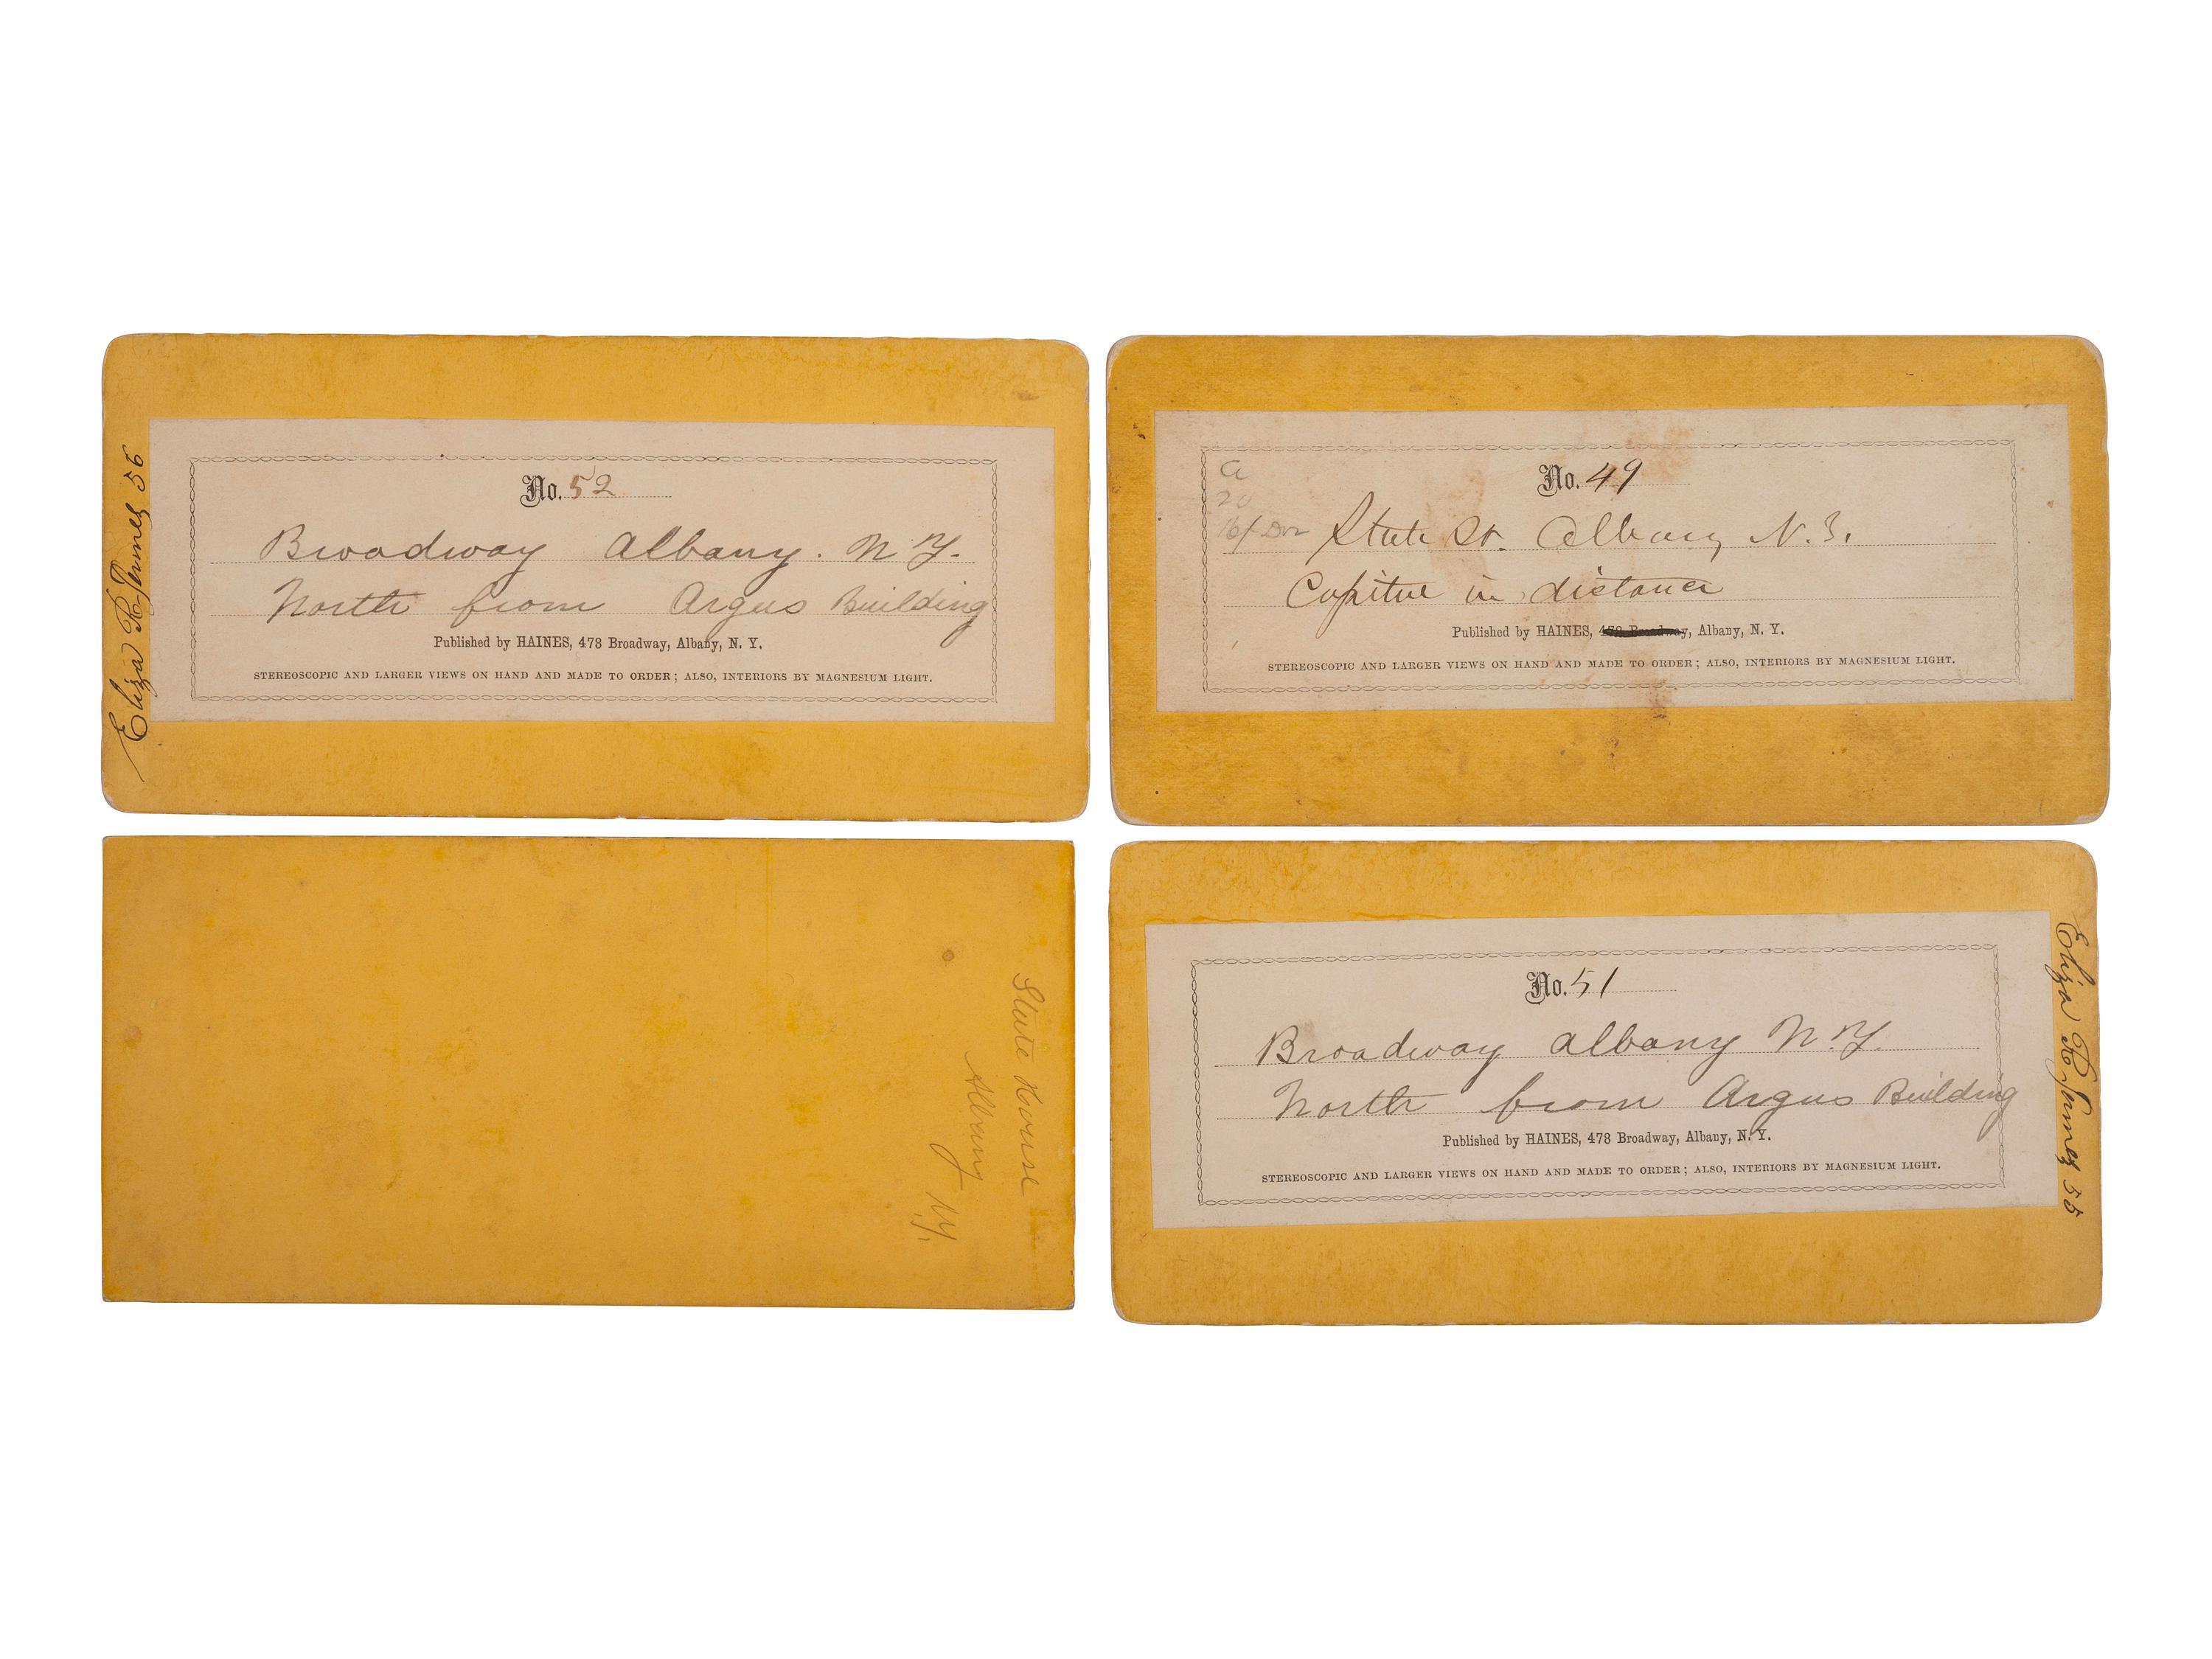 No. 52
Broadway Albany. N.Y.
North from Argus Building
Published by HAINES, 478 Broadway, Albany, N. Y.
STEREOSCOPIC AND LARGER VIEWS ON HAND AND MADE TO ORDER; ALSO, INTERIORS BY MAGNESIUM LIGHT.
Eliza R. 56
No. 49
State St. Albany N.Y.
Capitol in distance
Published by HAINES, 478 Broadway, Albany, N. Y.
STEREOSCOPIC AND LARGER VIEWS ON HAND AND MADE TO ORDER; ALSO, INTERIORS BY MAGNESIUM LIGHT.
State House
Albany N.Y.
No. 51
Broadway Albany N.Y.
North from Argus Building
Published by HAINES, 478 Broadway, Albany, N. Y.
STEREOSCOPIC AND LARGER VIEWS ON HAND AND MADE TO ORDER; ALSO, INTERIORS BY MAGNESIUM LIGHT.
Eliza R. 55